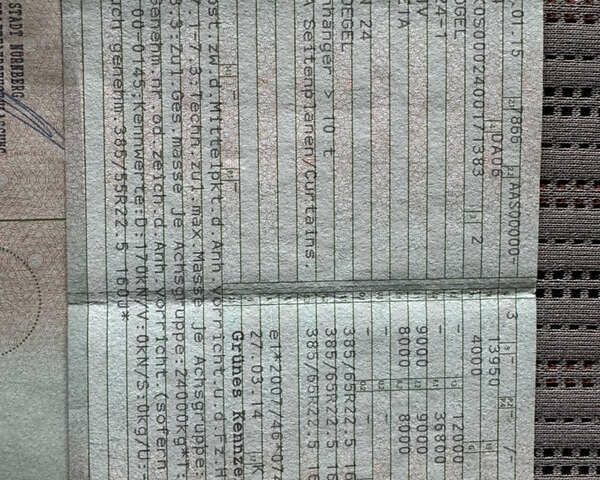 .01.15 7866 AAS00000- 3 - /-
UDA06 13950 -
KOS000240017I383 2 4000
OGEL - 12000
24-T - 36800
MV 9000 9000
8000 8000
- -
N 24 - -
OEGEL 385/65R22.5 16
hänger > 10 t 385/65R22.5 16
A Seitenplanen/Curtains. 385/65R22.5 16
e*2007/46*07
27.03.14 K
Grünes Kennze
ost zw.d.Mittelpkt.d.Anh.Vorricht.u.d.Fz.H
7.1-7.3:techn.zul.max.Masse je Achsgruppe:
8.3:Zul.Ges.masse je Achsgruppe:24000kg*T:
Genehm.nr.od.zeich.d.Anh.vorricht.(sofern
00-0145;Kennwerte:D:170kN/V:0kN/S:0kg/U:
uch genehm.385/55R22.5 160J*
STADT NÜRNBERG